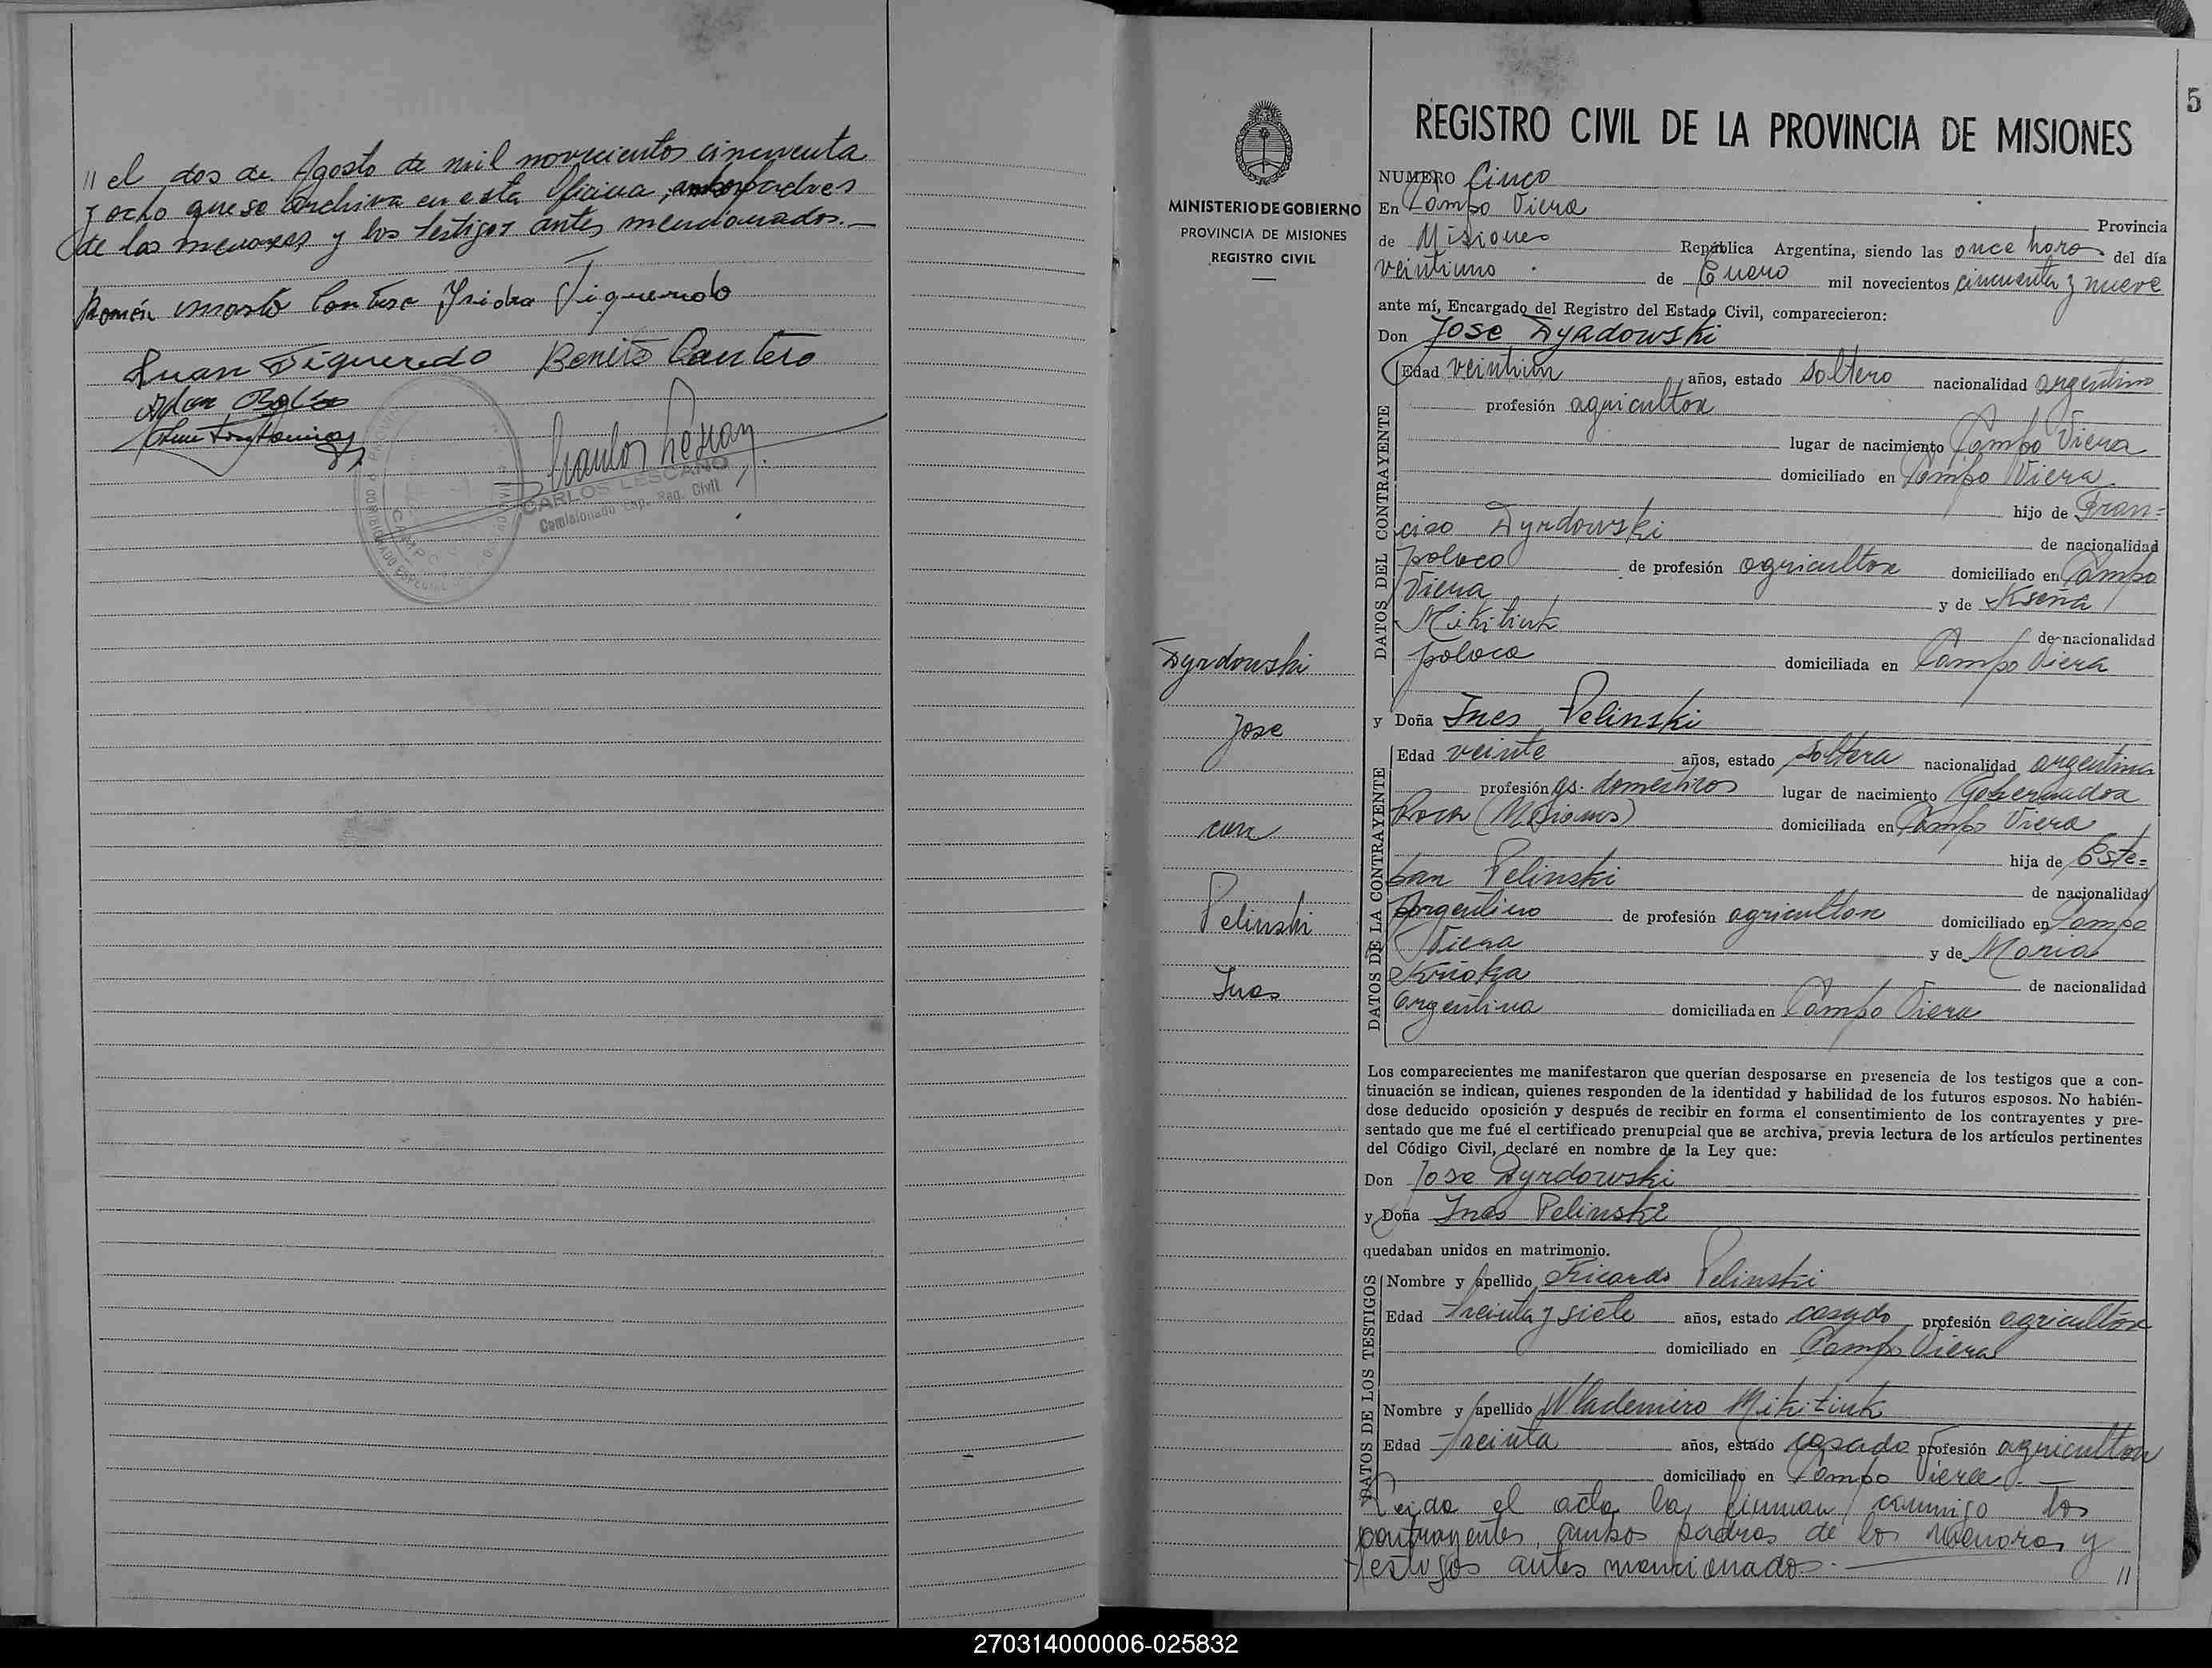 " el dos de Agosto de mil novecientos cincuenta
y ocho que se archiva en esta Oficina, ambos padres
de los menores y los testigos antes mencionados.—
Ramón Cantero Isidra Figueredo
Juan Figueredo Benito Cantero
CARLOS LESCANO
Comisionado Esp. Reg. Civil
5
MINISTERIO DE GOBIERNO
PROVINCIA DE MISIONES
REGISTRO CIVIL
Dyrdowski
Jose
con
Pelinski
Ines
REGISTRO CIVIL DE LA PROVINCIA DE MISIONES
NUMERO Cinco
En Campo Viera
Provincia
de Misiones República Argentina, siendo las once horas del día
veintiuno de Enero mil novecientos cincuenta y nueve
ante mí, Encargado del Registro del Estado Civil, comparecieron:
Don Jose Dyrdowski
DATOS DEL CONTRAYENTE
Edad veintiun años, estado soltero nacionalidad argentino
profesión agricultor
lugar de nacimiento Campo Viera
domiciliado en Campo Viera
hijo de Fran=
cisco Dyrdowski de nacionalidad
polaca de profesión agricultor domiciliado en Campo
Viera y de Kseña
Mikitiuk de nacionalidad
polaca domiciliada en Campo Viera
y Doña Ines Pelinski
DATOS DE LA CONTRAYENTE
Edad veinte años, estado soltera nacionalidad argentina
profesión qs. domesticos lugar de nacimiento Gobernador
Roca (Misiones) domiciliada en Campo Viera
hija de Este=
ban Pelinski de nacionalidad
Argentino de profesión agricultor domiciliado en Campo
Viera y de Maria
de nacionalidad
argentina domiciliada en Campo Viera
Los comparecientes me manifestaron que querían desposarse en presencia de los testigos que a con-
tinuación se indican, quienes responden de la identidad y habilidad de los futuros esposos. No habién-
dose deducido oposición y después de recibir en forma el consentimiento de los contrayentes y pre-
sentado que me fué el certificado prenupcial que se archiva, previa lectura de los artículos pertinentes
del Código Civil, declaré en nombre de la Ley que:
Don Jose Dyrdowski
y Doña Ines Pelinski
quedaban unidos en matrimonio.
DATOS DE LOS TESTIGOS
Nombre y apellido Ricardo Pelinski
Edad treinta y siete años, estado casado profesión agricultor
domiciliado en Campo Viera
Nombre y apellido Wlademiro Mikitiuk
Edad treinta años, estado casado profesión agricultor
domiciliado en Campo Viera.—
Leida el acta la firman conmigo los
contrayentes, ambos padres de los menores y
testigos antes mencionados.— "
270314000006-025832